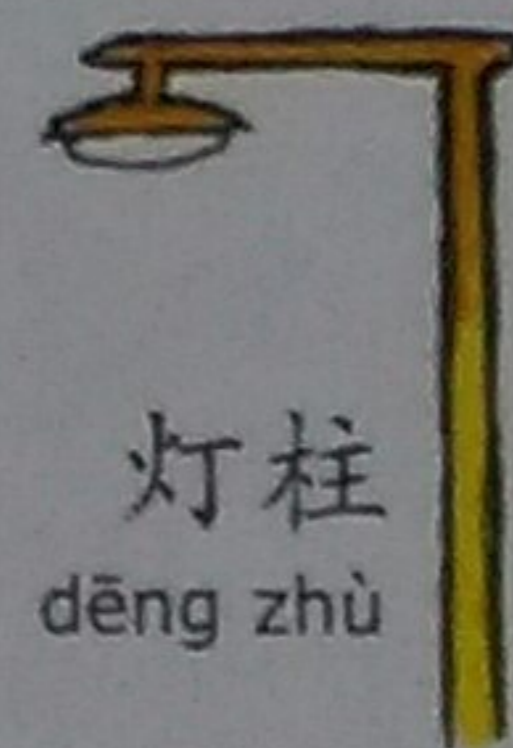 灯柱
dēng zhù